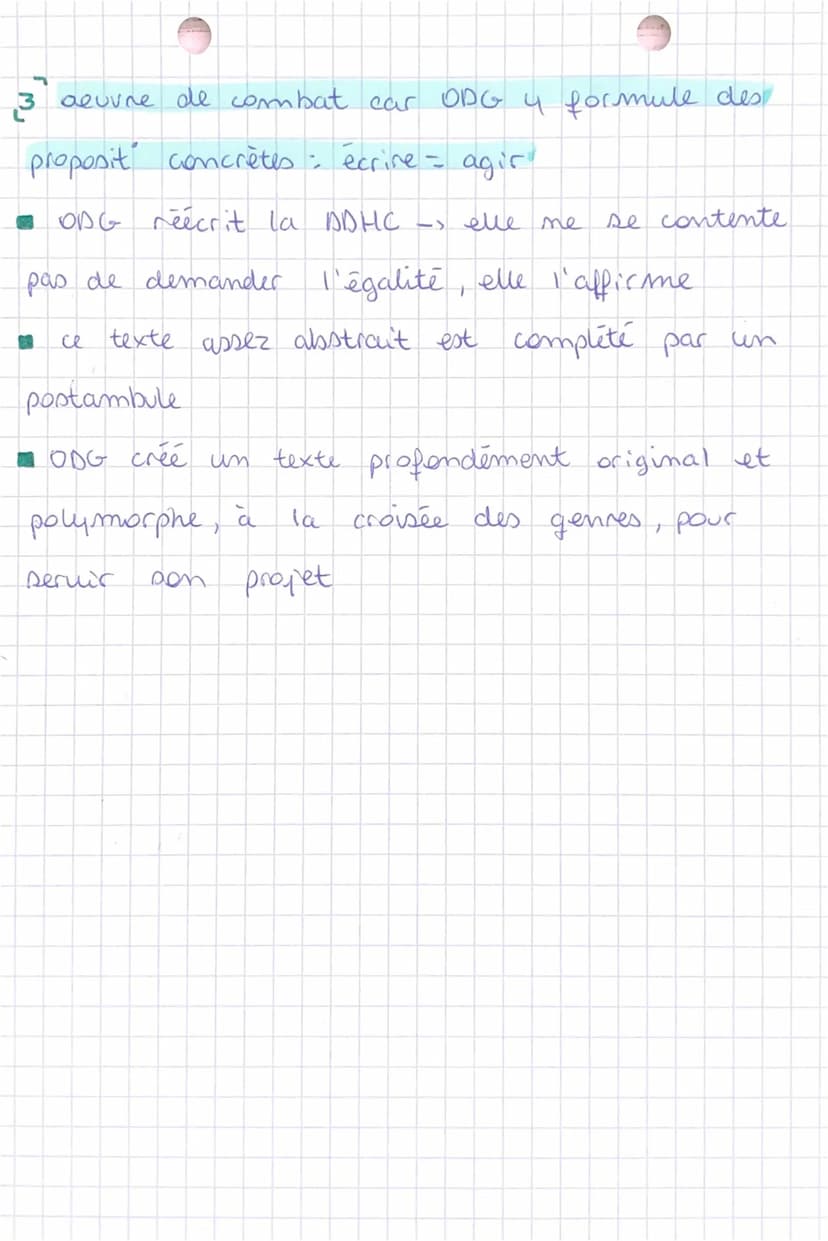 3 oeuvre de combat car ODG y formule des
proposit° concrètes : écrire = agir
ODG réécrit la DDHC -> elle ne se contente
pas de demander l'égalité, elle l'affirme
ce texte assez abstrait est complété par un
postambule
ODG créé un texte profondément original et
polymorphe, à la croisée des genres, pour
servir son projet